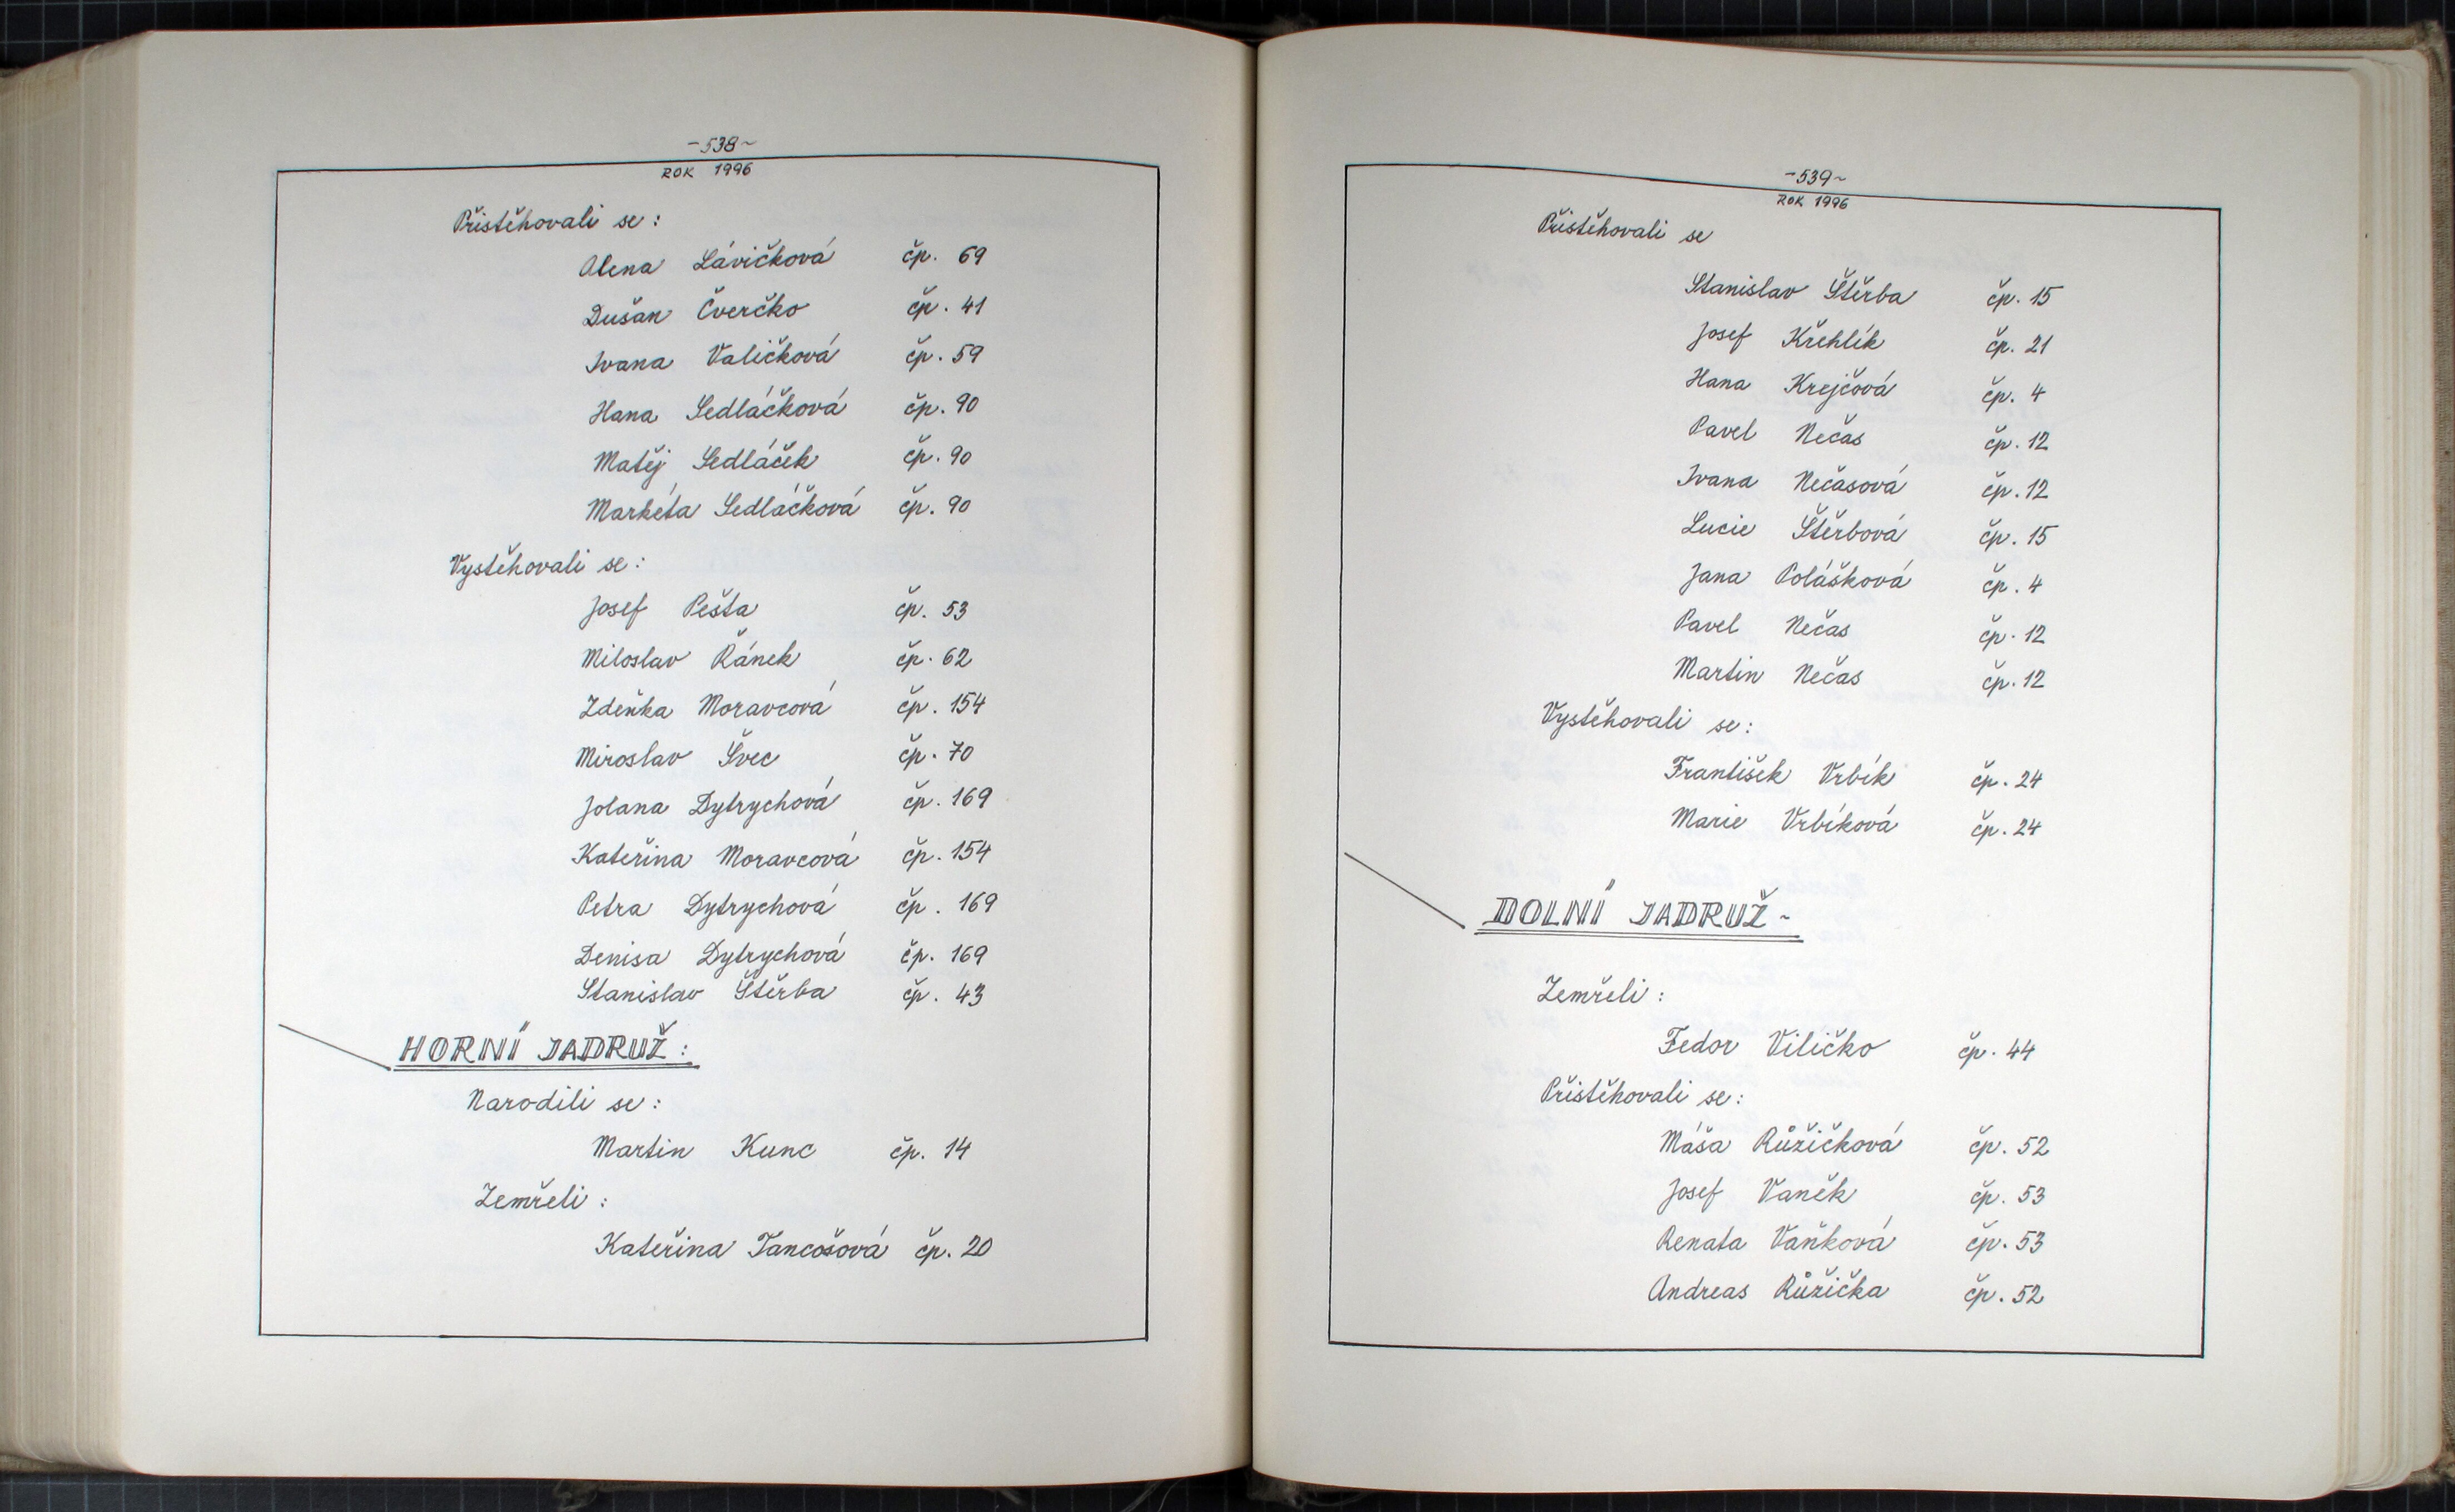 -538-
ROK 1996
Přistěhovali se:
Alena Lávičková čp. 69
Dušan Čverčko čp. 41
Ivana Valičková čp. 59
Hana Sedláčková čp. 90
Matěj Sedláček čp. 90
Markéta Sedláčková čp. 90
Vystěhovali se:
Josef Pešta čp. 53
Miloslav Řánek čp. 62
Zdeňka Moravcová čp. 154
Miroslav Švec čp. 70
Jolana Dytrychová čp. 169
Kateřina Moravcová čp. 154
Petra Dytrychová čp. 169
Denisa Dytrychová čp. 169
Stanislav Štěrba čp. 43
HORNÍ JADRUŽ:
Narodili se:
Martin Kunc čp. 14
Zemřeli:
Kateřina Tancošová čp. 20
-539-
ROK 1996
Přistěhovali se
Stanislav Štěrba čp. 15
Josef Křehlík čp. 21
Hana Krejčová čp. 4
Pavel Nečas čp. 12
Ivana Nečasová čp. 12
Lucie Štěrbová čp. 15
Jana Polášková čp. 4
Pavel Nečas čp. 12
Martin Nečas čp. 12
Vystěhovali se:
František Vrbík čp. 24
Marie Vrbíková čp. 24
DOLNÍ JADRUŽ-
Zemřeli:
Fedor Viličko čp. 44
Přistěhovali se:
Máša Růžičková čp. 52
Josef Vaněk čp. 53
Renata Vaňková čp. 53
Andreas Růžička čp. 52